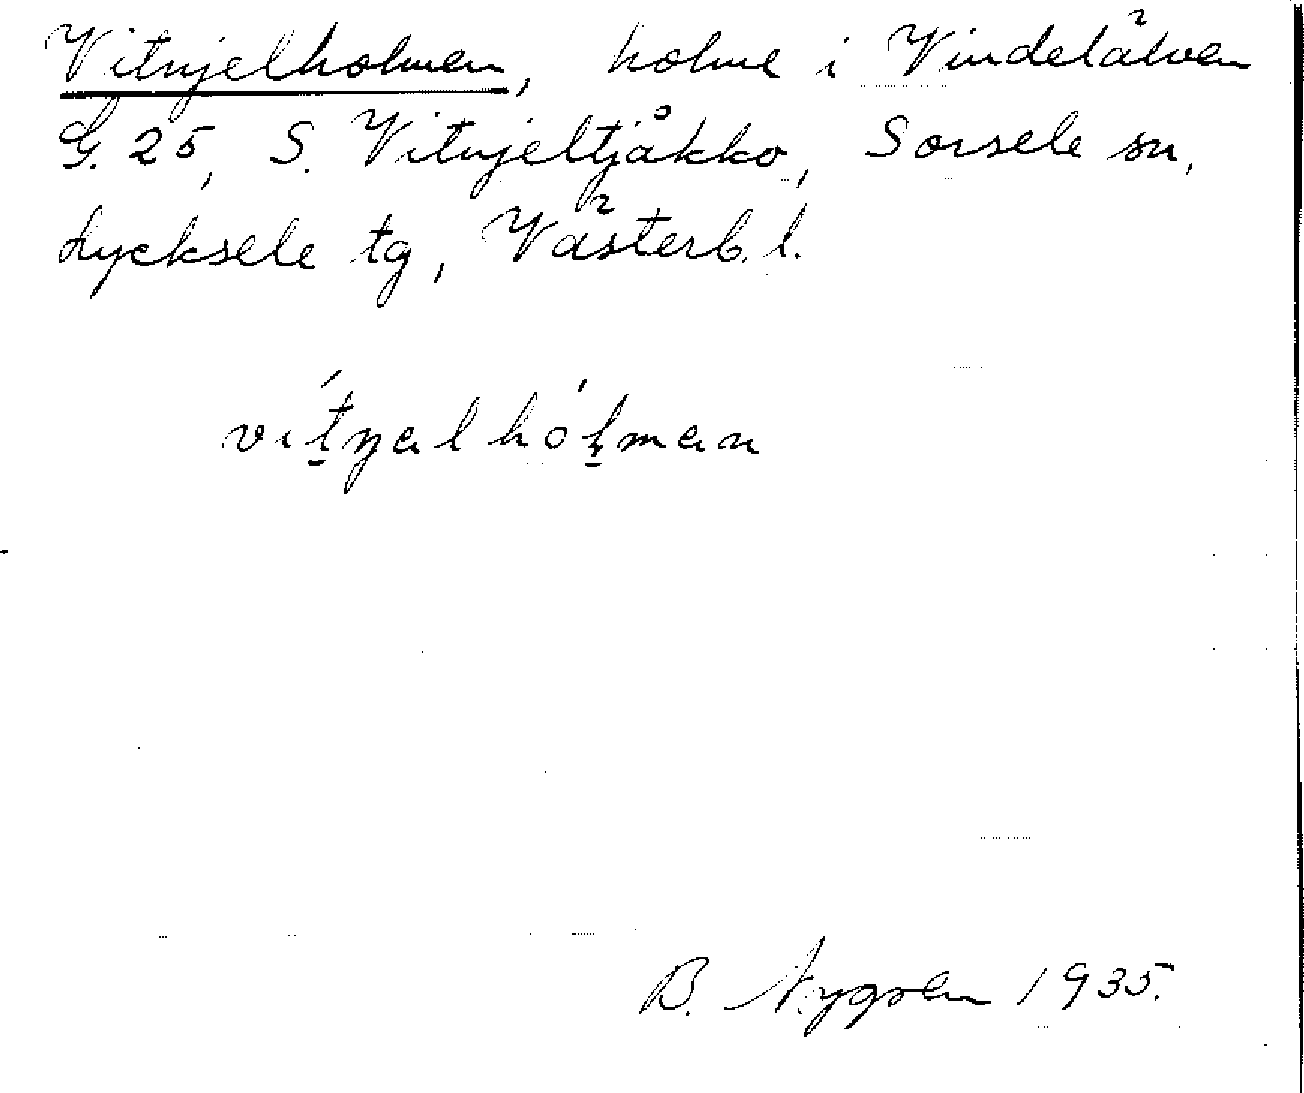 Vitnjelholmen, holme i Vindelälven
G. 25, S. Vitnjeltjåkko, Sorsele sn,
Lycksele tg, Västerb. l.
vítŋalhólman
B. Nygren 1935.